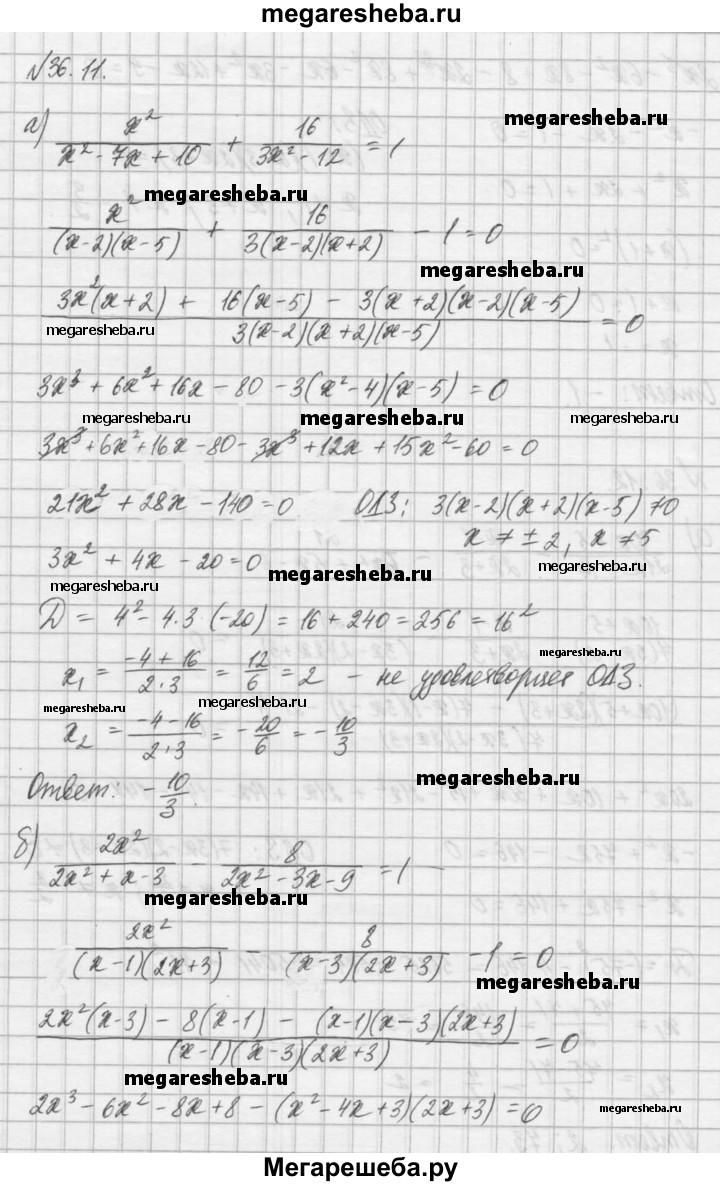 megaresheba.ru
№36.11.
а) x²/(x² - 7x + 10) + 16/(3x² - 12) = 1
megaresheba.ru
megaresheba.ru
x²/((x-2)(x-5)) + 16/(3(x-2)(x+2)) - 1 = 0
megaresheba.ru
(3x²(x+2) + 16(x-5) - 3(x+2)(x-2)(x-5))/(3(x-2)(x+2)(x-5)) = 0
megaresheba.ru
megaresheba.ru
3x³ + 6x² + 16x - 80 - 3(x² - 4)(x - 5) = 0
megaresheba.ru megaresheba.ru megaresheba.ru
3x³ + 6x² + 16x - 80 - 3x³ + 12x + 15x² - 60 = 0
21x² + 28x - 140 = 0 ОДЗ: 3(x-2)(x+2)(x-5) ≠ 0
x ≠ ±2, x ≠ 5
3x² + 4x - 20 = 0
megaresheba.ru megaresheba.ru megaresheba.ru
D = 4² - 4·3·(-20) = 16 + 240 = 256 = 16²
megaresheba.ru
x₁ = (-4 + 16)/(2·3) = 12/6 = 2 - не удовлетворяет ОДЗ.
megaresheba.ru megaresheba.ru
x₂ = (-4 - 16)/(2·3) = -20/6 = -10/3
megaresheba.ru
Ответ: -10/3.
б) 2x²/(2x² + x - 3) - 8/(2x² - 3x - 9) = 1
megaresheba.ru megaresheba.ru
2x²/((x-1)(2x+3)) - 8/((x-3)(2x+3)) - 1 = 0
megaresheba.ru
(2x²(x-3) - 8(x-1) - (x-1)(x-3)(2x+3))/((x-1)(x-3)(2x+3)) = 0
megaresheba.ru
2x³ - 6x² - 8x + 8 - (x² - 4x + 3)(2x + 3) = 0
megaresheba.ru
Мегарешеба.ру